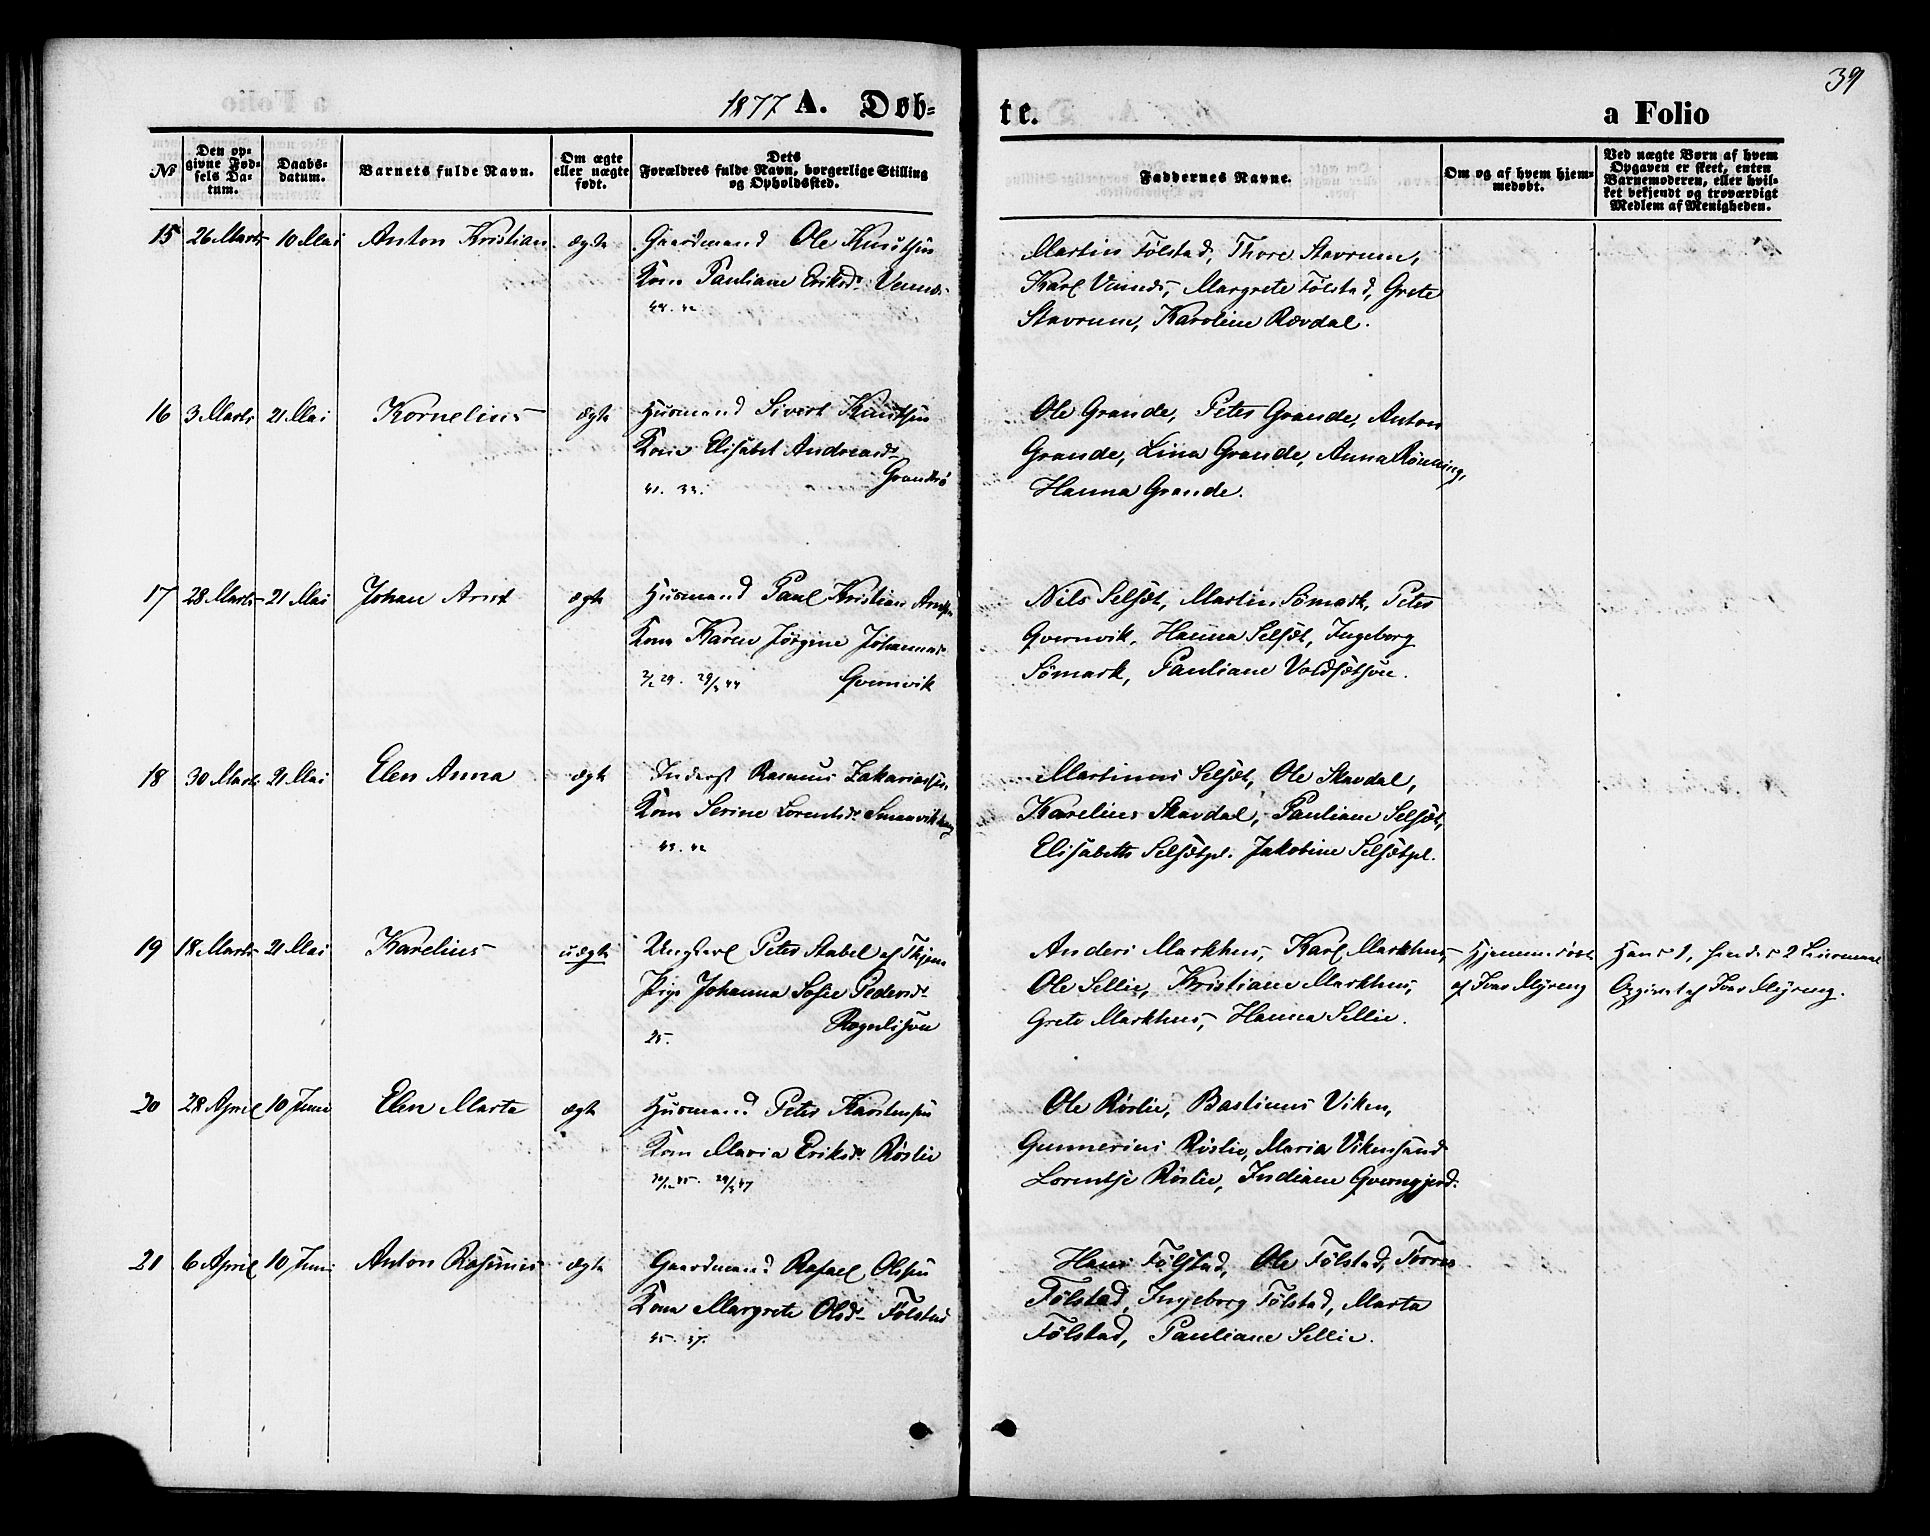 39
1877 A. Døb-
te.
a Folio
No
Den op-
givne Fød-
sels Da-
tum.
Daabs-
datum.
Barnets fulde Navn.
Om ægte
eller uægte
født.
Dets
Forældres fulde Navn, borgerlige Stilling
og Opholdssted.
Faddernes Navne.
Om og af hvem hjem-
medøbt.
Ved uægte Børn af hvem
Opgaven er skeet, enten
Barnemoderen, eller hvil-
ket bekjendt og troværdigt
Medlem af Menigheden.
15 26 Marts 10 Mai Anton Kristian ægte Gaardmand Ole Knutsen
Kone Pauliane Eriksd. Vennes
44. 42
Martin Følstad, Thore Stavrum,
Karl Vennes, Margrete Følstad, Grete
Stavrum, Karoline Rovdal.
16 3 Marts 21 Mai Kornelius ægte Husmand Sivert Knutsen
Kone Elisabet Andreasd.
Grandsø
41. 33.
Ole Grande, Peter Grande, Anton
Grande, Lina Grande, Anna Rønning,
Hanna Grande.
17 28 Marts 21 Mai Johan Arnt ægte Husmand Paul Kristian Arntsen
Kone Karen Jørgine Johannesd.
29. 29/3 44 Qvernvik
Nils Selsæt, Martin Sømark, Peter
Qvernvik, Hanna Selsæt, Ingeborg
Sømark, Pauliane Voldsætsøen.
18 30 Marts 21 Mai Elen Anna ægte Inderst Rasmus Zakariassen
Kone Serine Lorentsd.
43. 42
Martinus Selsæt, Ole Skavdal,
Karelius Skavdal, Pauliane Selsæt,
Elisabeth Selsætpl. Jakobine Selsætpl.
19 18 Marts 21 Mai Karelius uægte Ungkarl Peter Stabel af
Pige Johanna Sofie Pedersd.
25.
Anders Markhus, Karl Markhus,
Ole Sellie, Kristiane Markhus,
Grete Markhus, Hanna Sellie.
Hjemmedøbt
af Ivar Myreng
Hans 1, hendes 2 Leiermaal
Opgivet af Ivar Myreng.
20 28 April 10 Juni Elen Marta ægte Husmand Peter Karstensen
Kone Maria Eriksd. Røslie
45. 29/3 47
Ole Røslie, Bastinus Viken,
Gunnerius Røslie, Maria Vikensand
Lorentse Røslie, Indiane Qverngjerd.
21 6 April 10 Juni Anton Rasmus ægte Gaardmand Rafael Olsen
Kone Margrete Olsd. Følstad
45. 37.
Hans Følstad, Ole Følstad, Torres
Følstad, Ingeborg Følstad, Marta
Følstad, Pauliane Sellie.